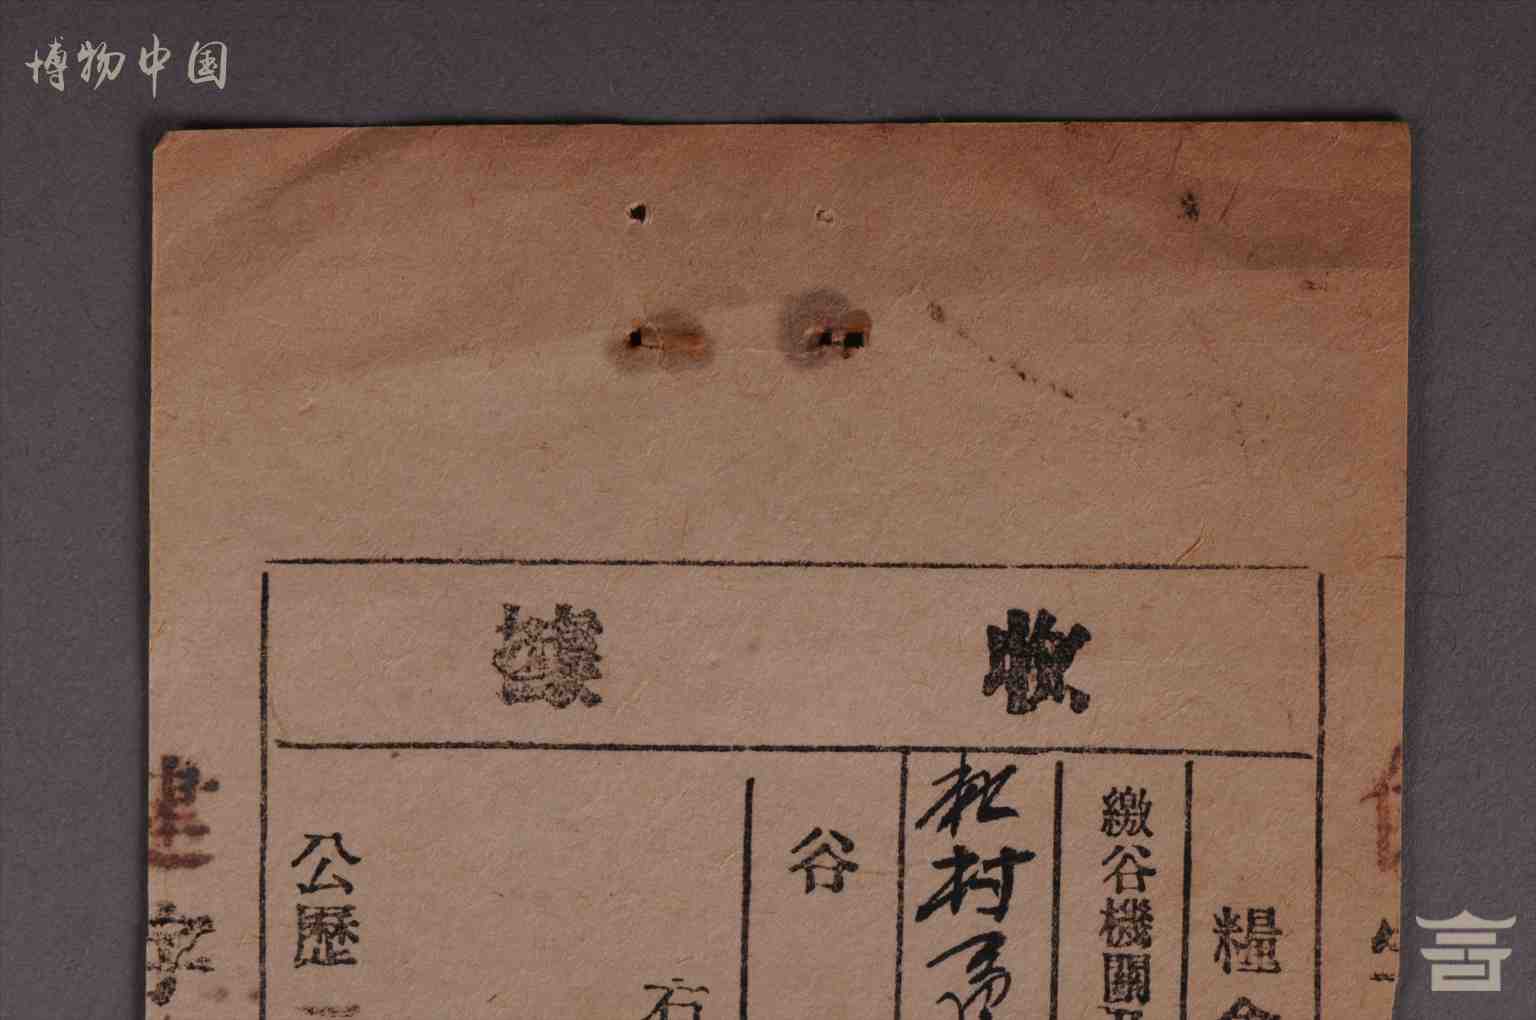 博物中国
收據
糧
繳谷機關
村
谷
石
公歷
建
字